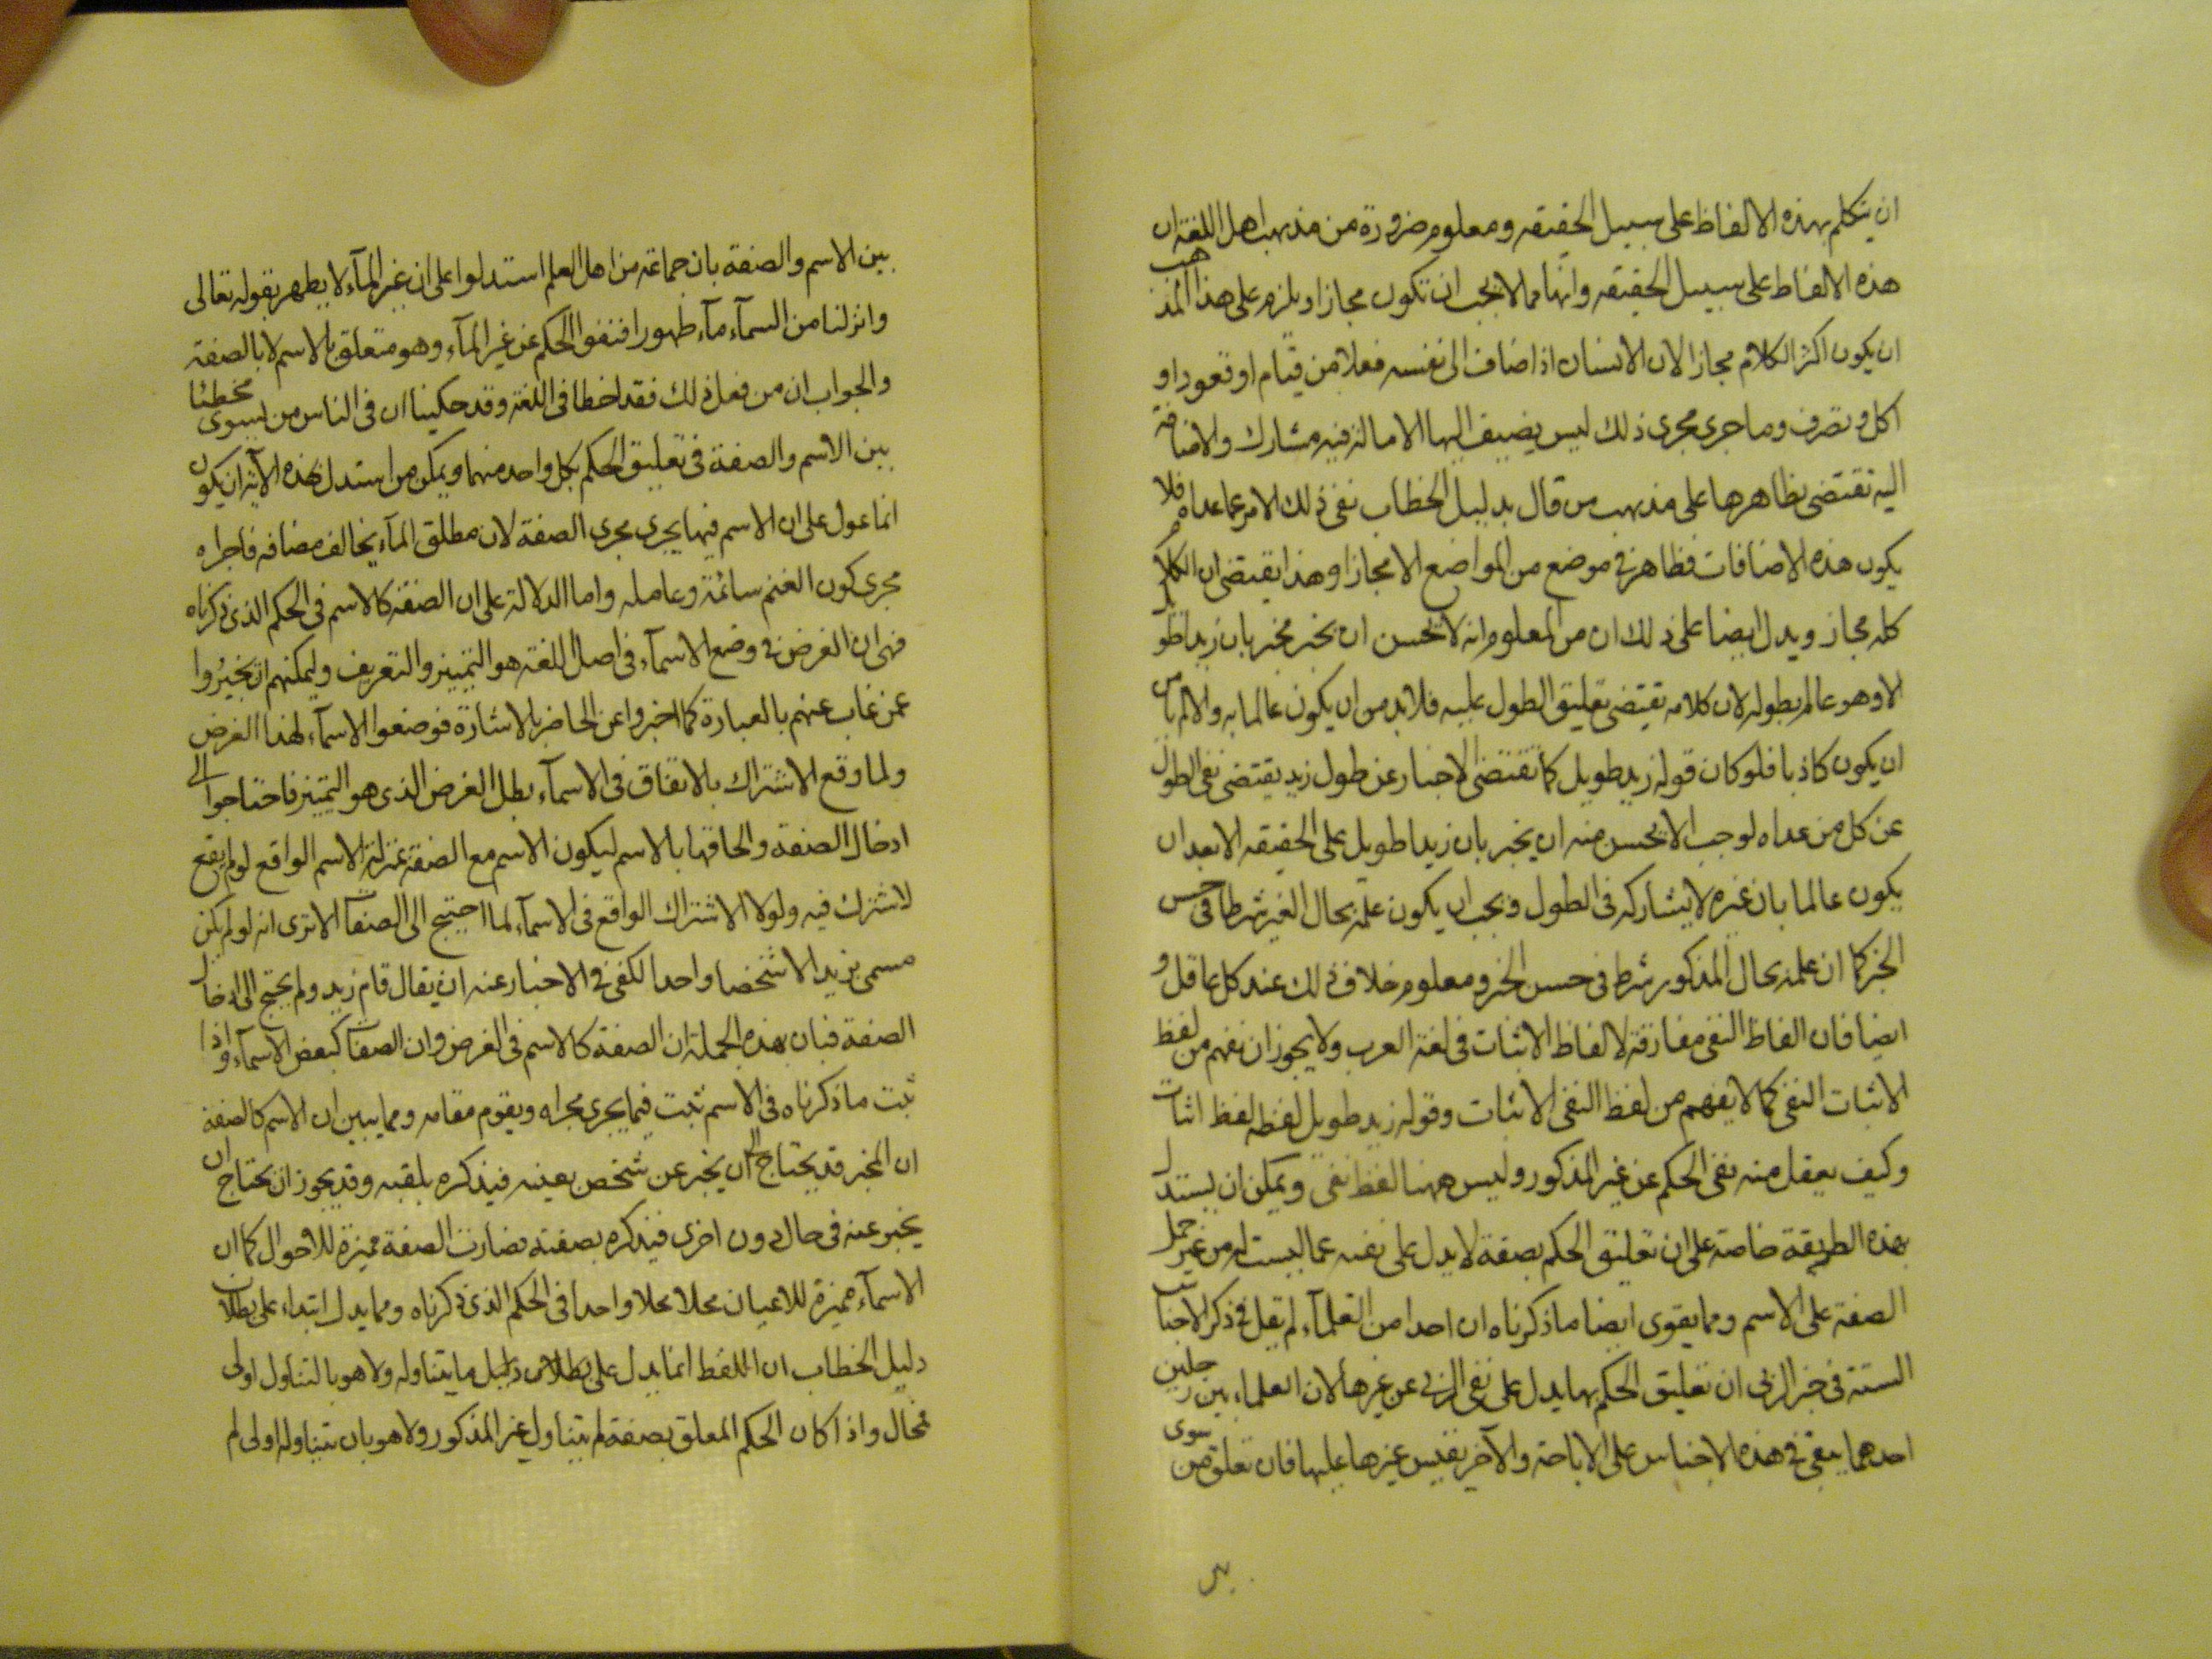 ان يتكلم بهذه الالفاظ على سبيل الحقيقه ومعلوم ضرورة من مذهب اهل اللغة ان
هذه الالفاظ على سبيل الحقيقه وانها مما لا يجب ان تكون مجازا ويلزم على هذا المذهب
ان يكون اكثر الكلام مجازا لان الانسان اذا ضاف الى نفسه فعلا من قيام او قعود او
اكل و تصرف وما جرى مجرى ذلك ليس يضيف اليها الا ماله فيه مشارك والاضافة
اليه تقتضى بظاهرها على مذهب من قال بدليل الخطاب نفى ذلك الامر عما عداه فلا
يكون هذه الاضافات فظاهر فى موضع من المواضع الا مجازا وهذا يقتضى ان الكلام
كله مجاز ويدل ايضا على ذلك ان من المعلوم انه لا يحسن ان يخبر مخبر بان زيدا طويل
الا وهو عالم بطوله لان كلامه يقتضى تعليق الطول عليه فلا بد من ان يكون عالما به والا لم يامن
ان يكون كاذبا فلو كان قوله زيد طويل كما تقتضى الاخبار عن طول زيد يقتضى نفى الطول
عن كل من عداه لوجب الا يحسن منه ان يخبر بان زيدا طويل على الحقيقه الا بعد ان
يكون عالما بان غيره لا يشاركه فى الطول و يجب ان يكون علمه بحال الغير شرطا فى حسن
الخبر كما ان علمه بحال المذكور شرط فى حسن الخبر ومعلوم خلاف ذلك عند كل عاقل و
ايضا فان الفاظ النفى مفارقة لالفاظ الاثبات فى لغة العرب ولا يجوز ان نفهم من لفظ
الاثبات النفى كما لا يفهم من لفظ النفى الاثبات وقوله زيد طويل لفظه لفظ اثبات
وكيف يعقل منه نفى الحكم عن غير المذكور وليس ههنا لفظ نفى ويمكن ان يستدل
بهذه الطريقة خاصة على ان تعليق الحكم بصفة لا يدل على نفيه عما ليست له من غير حمل
الصفة على الاسم ومما يقوى ايضا ما ذكرناه ان احدا من العلمآء لم يقل فى ذكر الاجناس
الستة فى خبر الربى ان تعليق الحكم بها يدل على نفى الربى عن غيرها لان العلماء بين رجلين
احدهما يبقى فى هذه الاجناس على الاباحة والآخر يقيس غيرها عليها فان تعلق من سوى
بين الاسم والصفة بان جماعة من اهل العلم استدلوا على ان غير المآء لا يطهر بقوله تعالى
وانزلنا من السمآء مآء طهورا فنفوا الحكم عن غير المآء وهو متعلق بالاسم لا بالصفة
والجواب ان من فعل ذلك فقد اخطا فى اللغة وقد حكينا ان فى الناس من يسوى مخطئا
بين الاسم والصفة فى تعليق الحكم بكل واحد منهما ويمكن من استدل بهذه الآية ان يكون
انما عول على ان الاسم فيها يجرى مجرى الصفة لان مطلق المآء يخالف مضافه فاجراه
مجرى كون الغنم سائمة وعامله واما الدلالة على ان الصفة كالاسم فى الحكم الذى ذكرناه
فهى ان الغرض فى وضع الاسمآء فى اصل اللغة هو التمييز والتعريف وليمكنهم ان يخبروا
عمن غاب عنهم بالعبارة كما اخبروا عن الحاضر بالاشارة فوضعوا الاسمآء لهذا الغرض
ولما وقع الاشتراك بالاتفاق فى الاسمآء بطل الغرض الذى هو التمييز فاحتاجوا الى
ادخال الصفة والحاقها بالاسم ليكون الاسم مع الصفة بمنزلة الاسم الواقع لو لم يقع
لاشترك فيه ولولا الاشتراك الواقع فى الاسمآء لما احتيج الى الصفات الا ترى انه لو لم يكن
مسمى بزيد الا شخصا واحدا لكفى فى الاخبار عنه ان يقال قام زيد ولم يحتج الى ادخال
الصفة فبان بهذه الجملة ان الصفة كالاسم فى الغرض وان الصفات كبعض الاسمآء واذا
ثبت ما ذكرناه فى الاسم ثبت فيما يجرى مجراه ويقوم مقامه ومما يبين ان الاسم كالصفة
ان المخبر قد يحتاج الى ان يخبر عن شخص بعينه فيذكره بلقبه وقد يجوز ان يحتاج ان
يخبر عنه فى حال دون اخرى فيذكره بصفته فصارت الصفة مميزة للاحوال كما ان
الاسمآء مميزة للاعيان محلا محلا واحدا فى الحكم الذى ذكرناه ومما يدل ابتداء على بطلان
دليل الخطاب ان اللفظ انما يدل على بطلان دليل ما يتناوله ولا هو بالتناول اولى
فحال واذا كان الحكم المعلق بصفة لم يتناول غير المذكور ولا هو بان يتناوله اولى لم